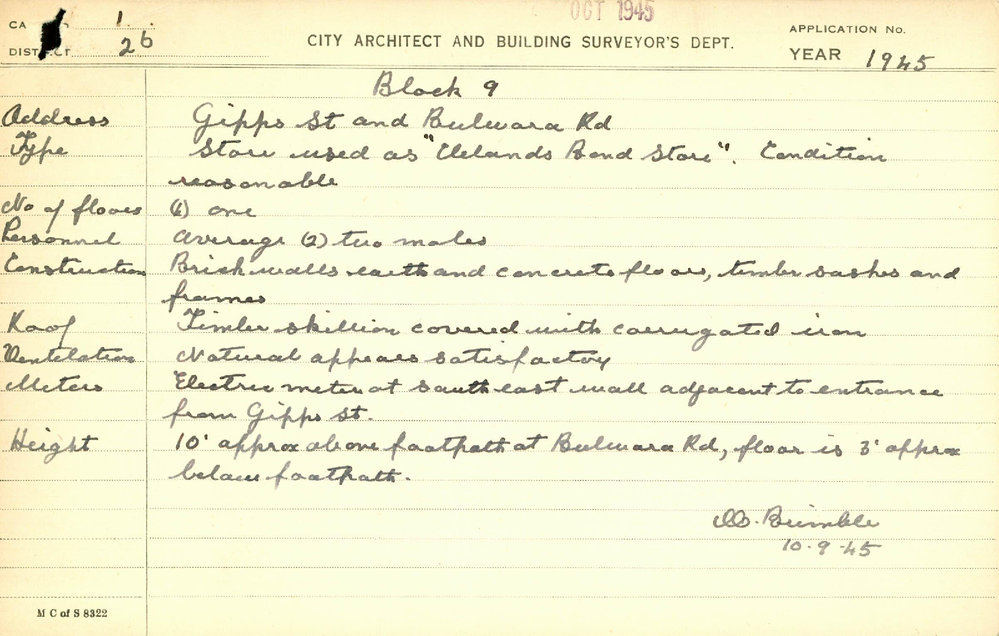 OCT 1945
CA 1.
DIST CT 26
CITY ARCHITECT AND BUILDING SURVEYOR'S DEPT.
APPLICATION No.
YEAR 1945
Block 9
Address Gipps St and Bulwara Rd
Type Store used as "Clelands Bond Store". Condition
reasonable
No of floors (1) one
Personnel average (2) two males
Construction Brick walls earth and concrete floors, timber sashes and
frames
Roof Timber skillion covered with corrugated iron
Ventilation Natural appears satisfactory
Meters Electric meter at south east wall adjacent to entrance
from Gipps St.
Height 10' approx above footpath at Bulwara Rd, floor is 3' approx
below footpath.
Brimble
10-9-45
M C of S 8322